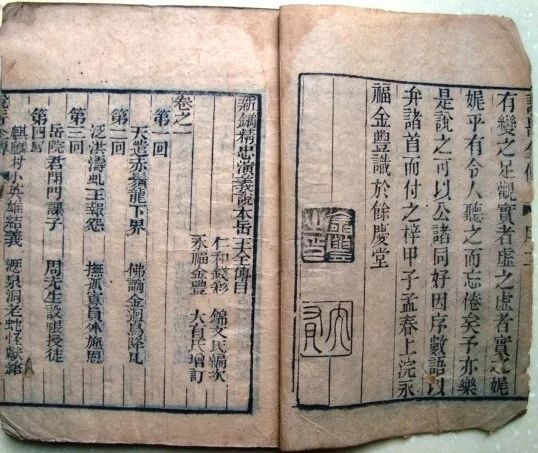 有變之足觀實者虛之虛者實之娓
娓乎有令人聽之而忘倦矣予亦樂
是說之可以公諸同好因序數語以
弁諸首而付之梓甲子孟春上浣永
福金豐識於餘慶堂
大有
新鐫精忠演義說本岳王全傳目
仁和錢彩 錦文氏編次
永福金豐 大有氏增訂
卷之一
第一回
天遣赤鬚龍下界 佛謫金翅鳥降凡
第二回
泛洪濤虬王報怨 撫孤寡員外施恩
第三回
岳院君閉門課子 周先生設帳授徒
第四回
麒麟村小英雄結義 瀝泉洞老蛇怪獻鎗